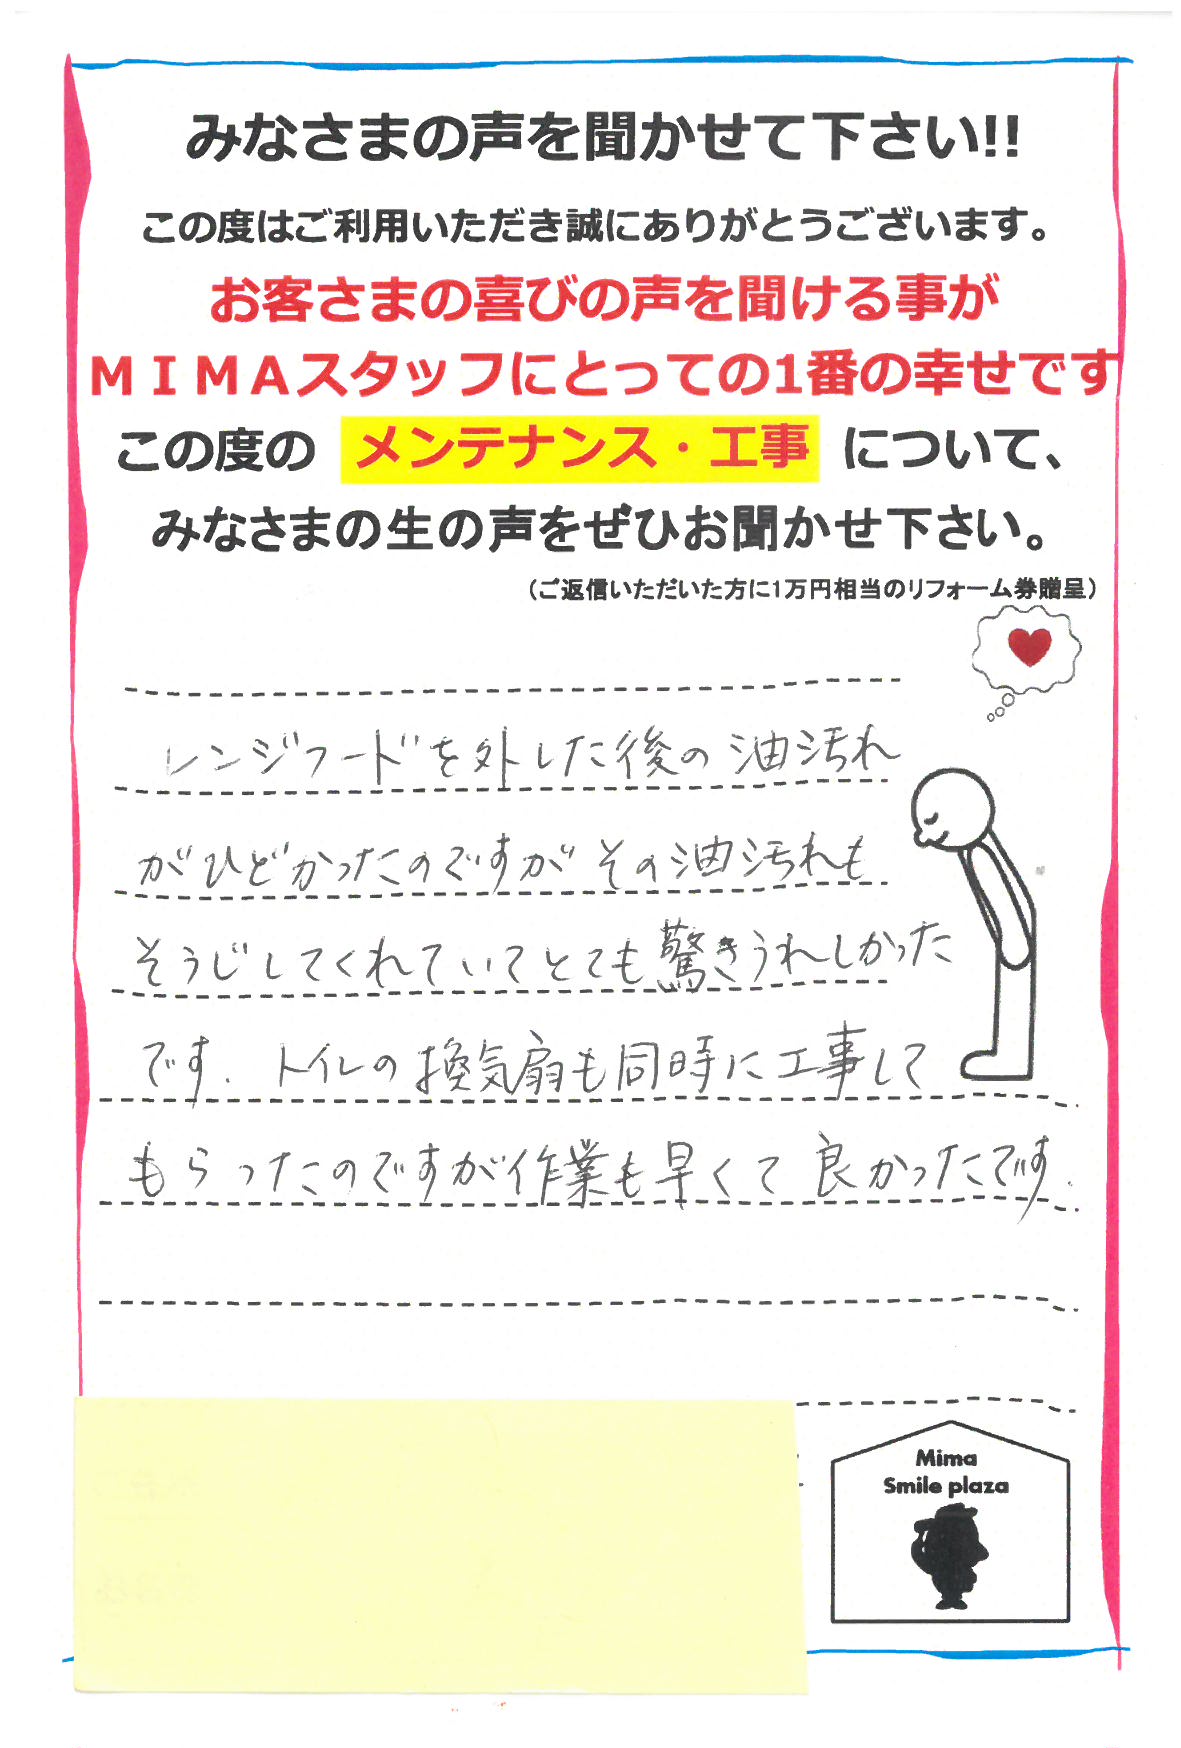 みなさまの声を聞かせて下さい!!
この度はご利用いただき誠にありがとうございます。
お客さまの喜びの声を聞ける事が
ＭＩＭＡスタッフにとっての1番の幸せです
この度の メンテナンス・工事 について、
みなさまの生の声をぜひお聞かせ下さい。
（ご返信いただいた方に1万円相当のリフォーム券贈呈）
レンジフードを外した後の油汚れ
がひどかったのですがその油汚れも
そうじしてくれていてとても驚きうれしかった
です. トイレの換気扇も同時に工事して
もらったのですが作業も早くて良かったです.
Mima
Smile plaza